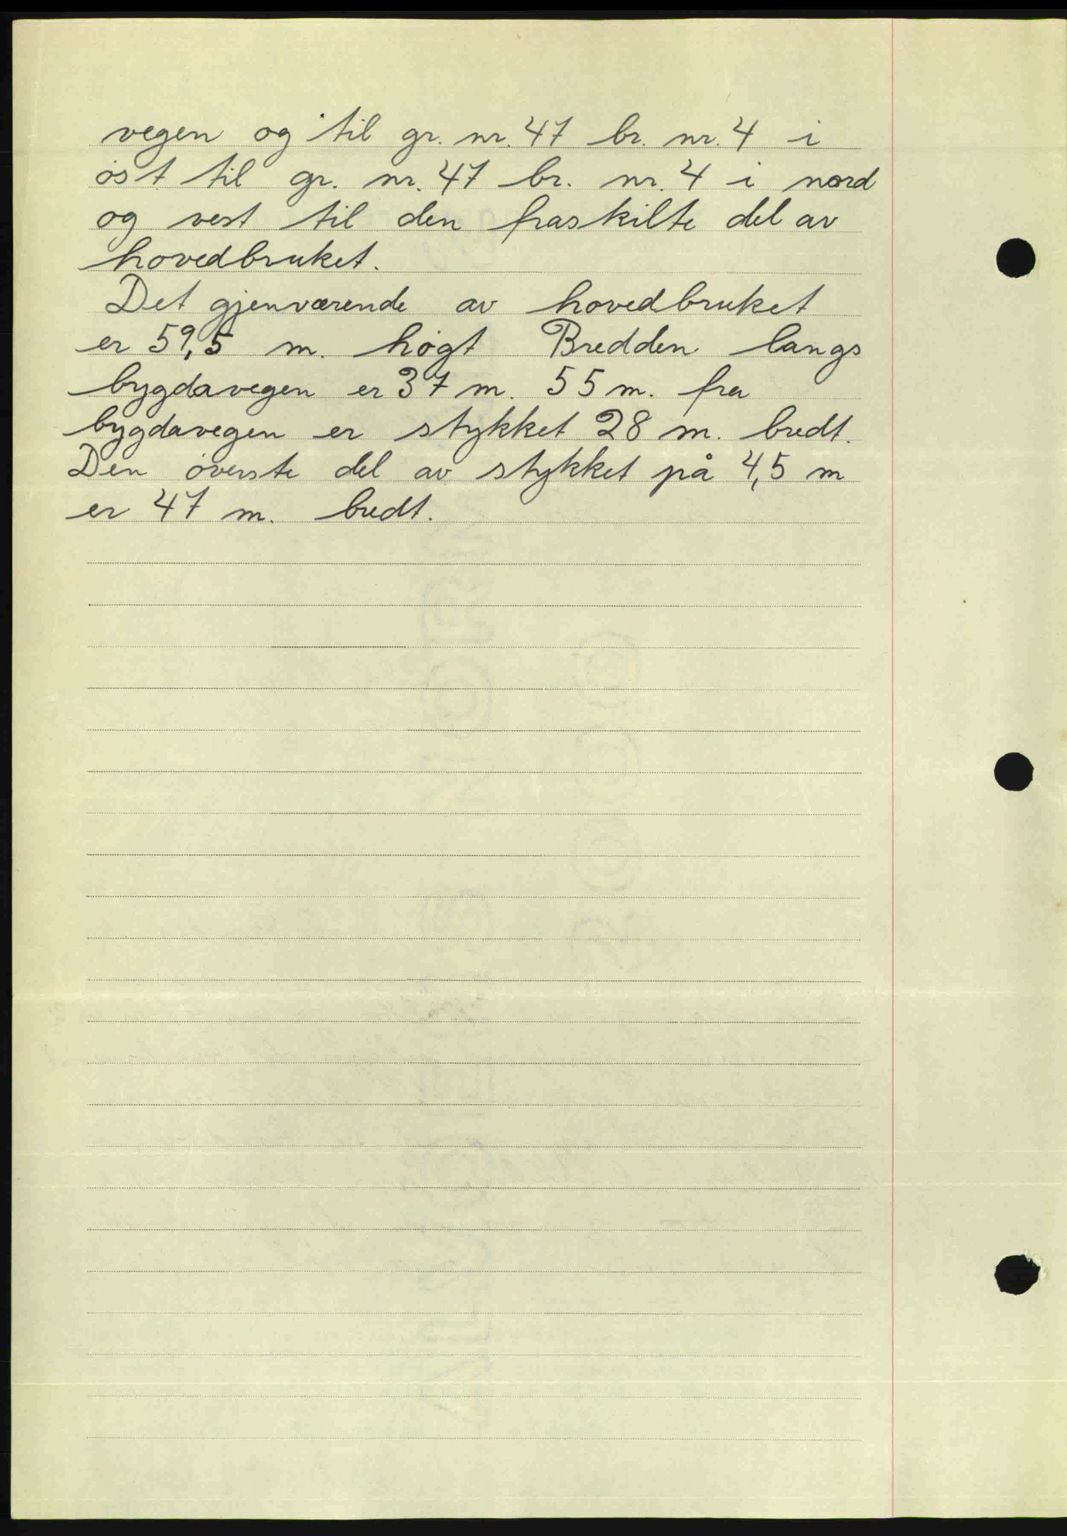 vegen og til gr. nr. 47 br. nr. 4 i
øst til gr. nr. 47 br. nr. 4 i nord
og vest til den fraskilte del av
hovedbruket.
Det gjenværende av hovedbruket
er 59,5 m. høgt Bredden langs
bygdavegen er 37 m. 55 m. fra
bygdavegen er stykket 28 m. bredt.
Den øverste del av stykket på 4,5 m
er 47 m. bredt.